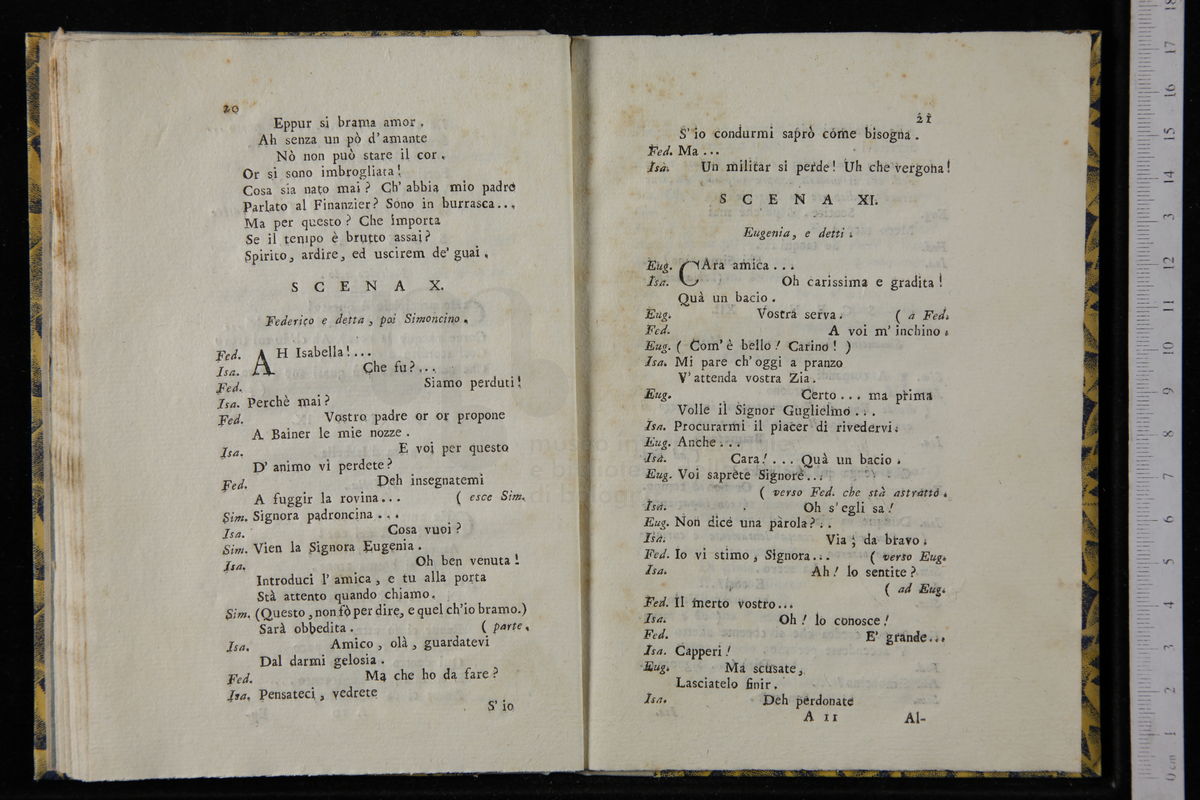 20
Eppur si brama amor.
Ah senza un pò d'amante
Nò non può stare il cor.
Or si sono imbrogliata!
Cosa sia nato mai? Ch'abbia mio padre
Parlato al Finanzier? Sono in burrasca...
Ma per questo? Che importa
Se il tempo è brutto assai?
Spirito, ardire, ed uscirem de' guai.
SCENA X.
Federico e detta, poi Simoncino.
Fed. AH Isabella!...
Isa. Che fu?...
Fed. Siamo perduti!
Isa. Perchè mai?
Fed. Vostro padre or or propone
A Bainer le mie nozze.
Isa. E voi per questo
D'animo vi perdete?
Fed. Deh insegnatemi
A fuggir la rovina... (esce Sim.
Sim. Signora padroncina...
Isa. Cosa vuoi?
Sim. Vien la Signora Eugenia.
Isa. Oh ben venuta!
Introduci l'amica, e tu alla porta
Stà attento quando chiamo.
Sim. (Questo, non fò per dire, e quel ch'io bramo.)
Sarà obbedita. (parte.
Isa. Amico, olà, guardatevi
Dal darmi gelosia.
Fed. Ma che ho da fare?
Isa. Pensateci, vedrete
S'io
21
S'io condurmi saprò come bisogna.
Fed. Ma...
Isa. Un militar si perde! Uh che vergona!
SCENA XI.
Eugenia, e detti.
Eug. CAra amica...
Isa. Oh carissima e gradita!
Quà un bacio.
Eug. Vostra serva. (a Fed.
Fed. A voi m'inchino.
Eug. (Com'è bello! Carino!)
Isa. Mi pare ch'oggi a pranzo
V'attenda vostra Zia.
Eug. Certo... ma prima
Volle il Signor Guglielmo...
Isa. Procurarmi il piacer di rivedervi.
Eug. Anche...
Isa. Cara!... Quà un bacio.
Eug. Voi saprete Signore...
(verso Fed. che stà astratto.
Isa. Oh s'egli sa!
Eug. Non dice una parola?..
Isa. Via, da bravo.
Fed. Io vi stimo, Signora... (verso Eug.
Isa. Ah! lo sentite?
(ad Eug.
Fed. Il merto vostro...
Isa. Oh! lo conosce!
Fed. E' grande...
Isa. Capperi!
Eug. Ma scusate,
Lasciatelo finir.
Isa. Deh perdonate
A 11 Al-